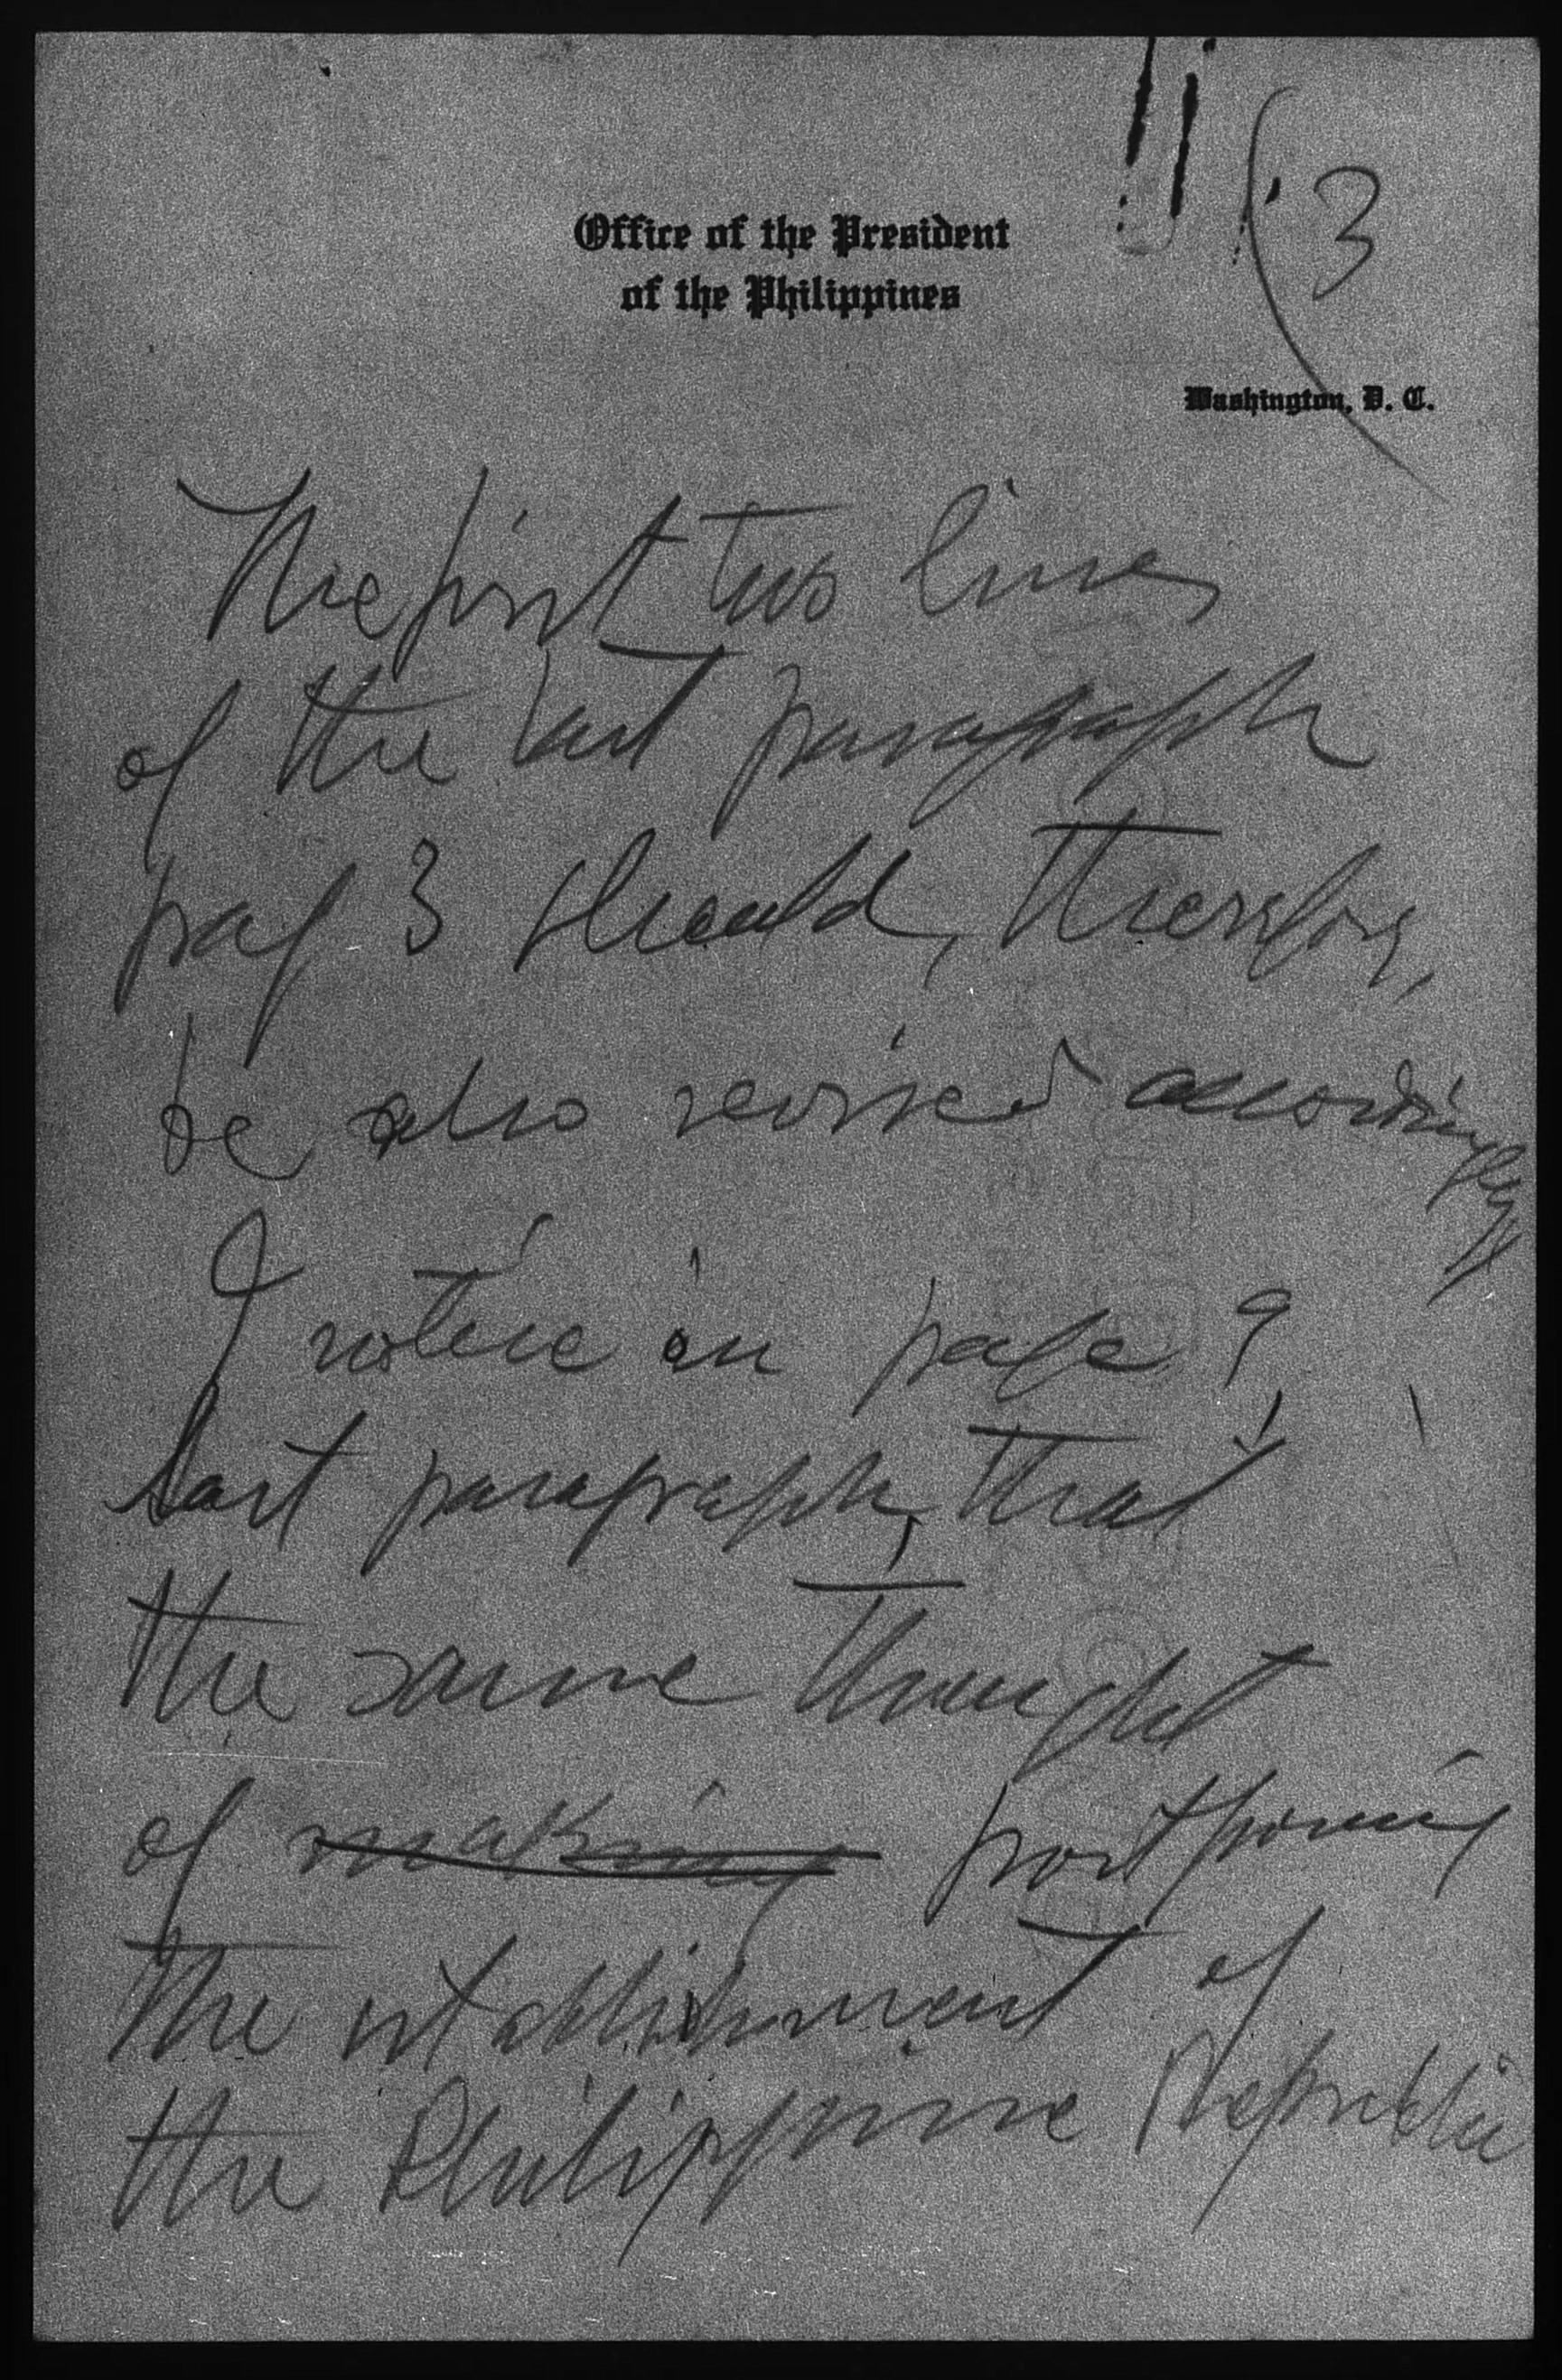 Office of the President
of the Philippines
(3
Washington, D. C.
The first two lines
of the last paragraph
pag 3 should, therefore,
be also revised accordingly
I notice in page 9
last paragraph, that
the same thought
of making postponing
the establishment of
the Philippine Republic